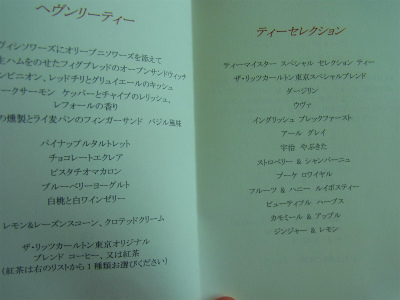 ヘヴンリーティー
ヴィシソワーズにオリーブニソワーズを添えて
生ハムをのせたフィグブレッドのオープンサンドウィッチ
ンピニオン、レッドチリとグリュイエールのキッシュ
ークサーモン ケッパーとチャイブのレリッシュ、
レフォールの香り
の燻製とライ麦パンのフィンガーサンド バジル風味
パイナップルタルトレット
チョコレートエクレア
ピスタチオマカロン
ブルーベリーヨーグルト
白桃と白ワインゼリー
レモン&レーズンスコーン、クロテッドクリーム
ザ・リッツカールトン東京オリジナル
ブレンド コーヒー、又は紅茶
(紅茶は右のリストから1種類お選びください)
ティーセレクション
ティーマイスター スペシャル セレクション ティー
ザ・リッツカールトン東京スペシャルブレンド
ダージリン
ウヴァ
イングリッシュ ブレックファースト
アール グレイ
宇治 やぶきた
ストロベリー & シャンパーニュ
ブーケ ロワイヤル
フルーツ & ハニー ルイボスティー
ビューティフル ハーブス
カモミール & アップル
ジンジャー & レモン